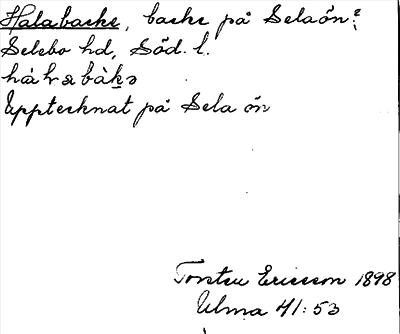 Halabacke, backe på Selaön?,
Selebo hd, Söd. l.
Upptecknat på Sela ön
Torsten Ericsson 1898
Ulma 41:53